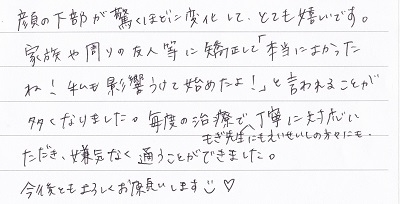 顔の下部が驚くほどに変化して、とても嬉しいです。
家族や周りの友人等に矯正して「本当によかった
ね！私も影響うけて始めたよ！」と言われることが
多くなりました。毎度の治療で丁寧に対応い
もぎ先生にもえいせいしの方々にも、
ただき、嫌気なく通うことができました。
今後ともよろしくお願いします